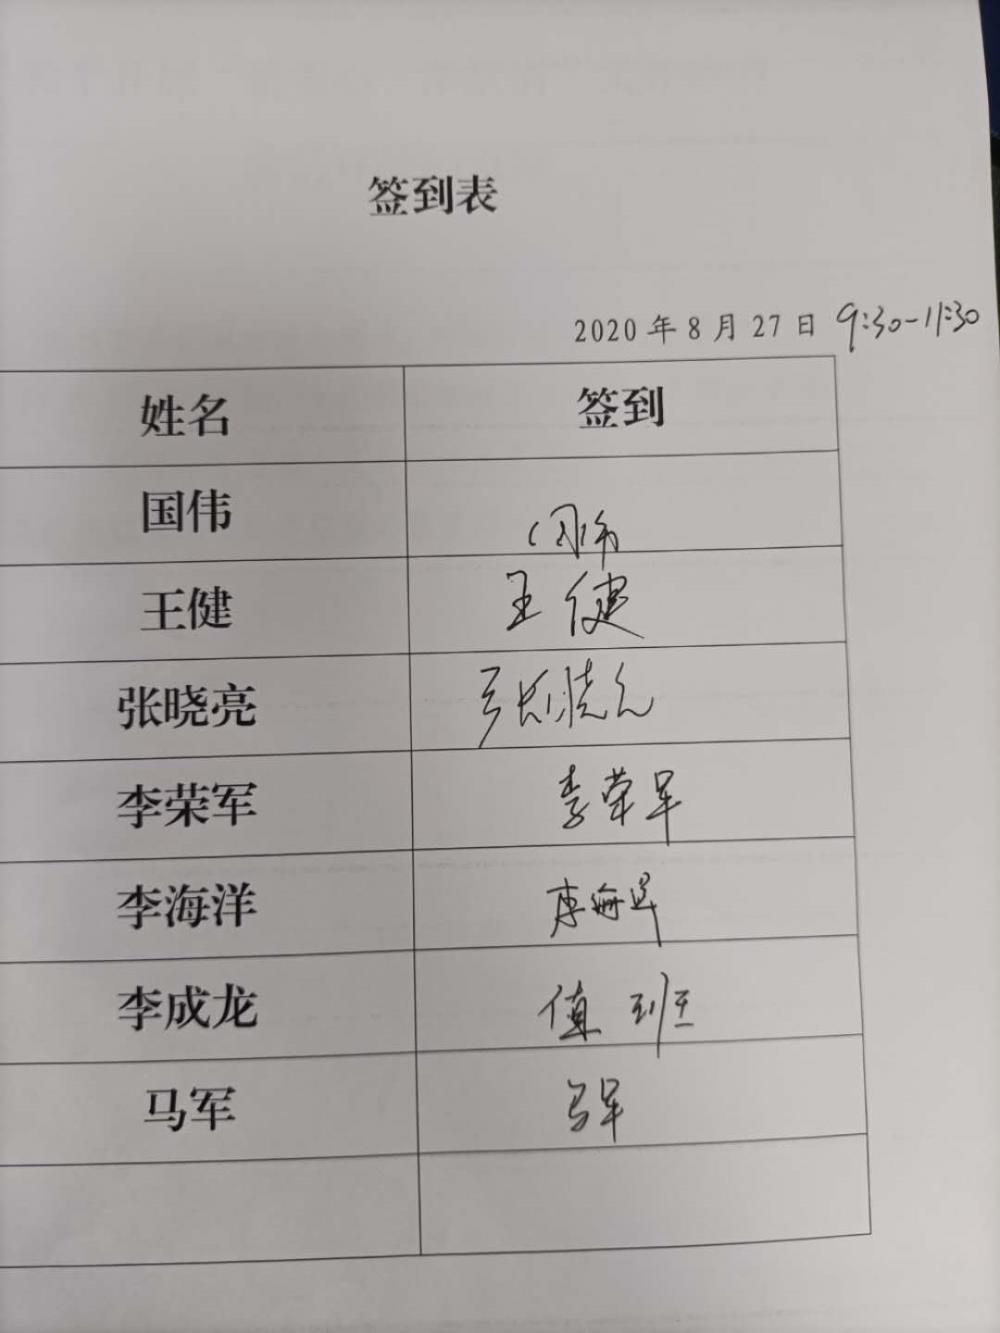 签到表
2020年8月27日 9:30-11:30
姓名 签到
国伟 国伟
王健 王健
张晓亮 张晓亮
李荣军 李荣军
李海洋 李海洋
李成龙 值班
马军 马军